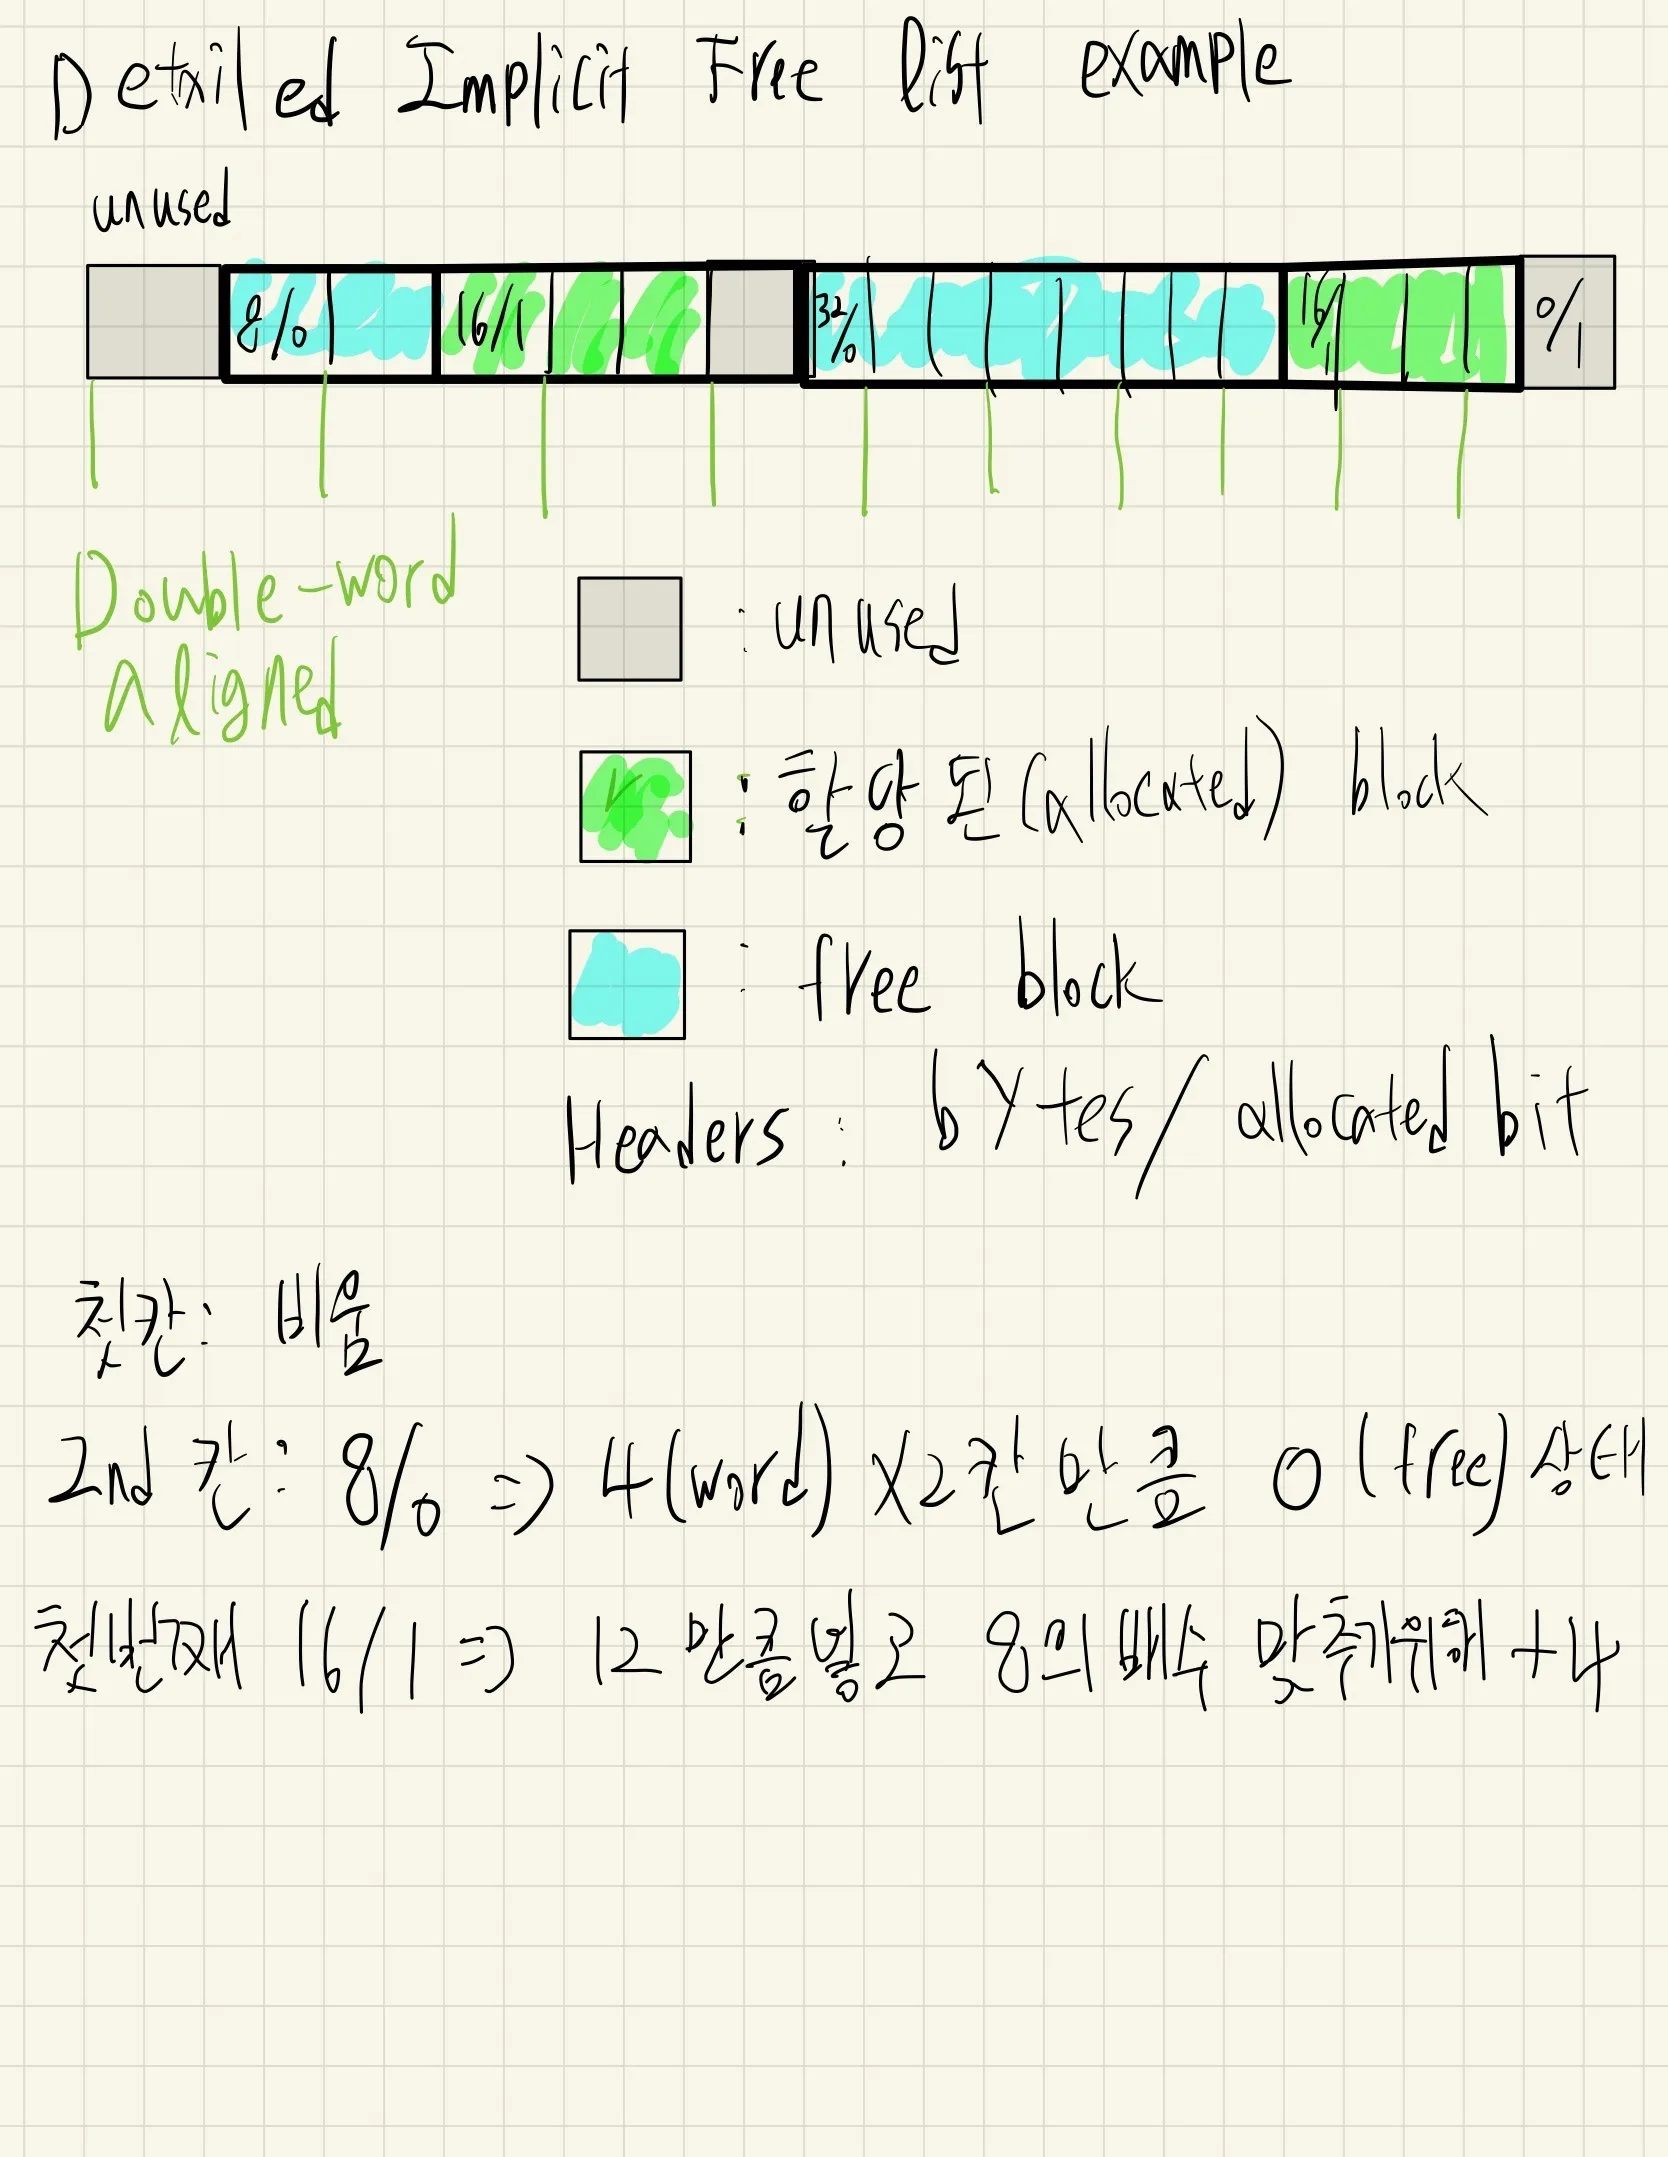 Detailed Implicit Free list example
unused
8/0 16/1 32/0 16/1 0/1
Double-word
aligned
: unused
: 할당된(allocated) block
: free block
Headers : bytes/allocated bit
첫칸: 비움
2nd 칸: 8/0 => 4(word) X2칸 만큼 0(free) 상태
첫번째 16/1 => 12 만큼별로 8의 배수 맞추기위해 +4